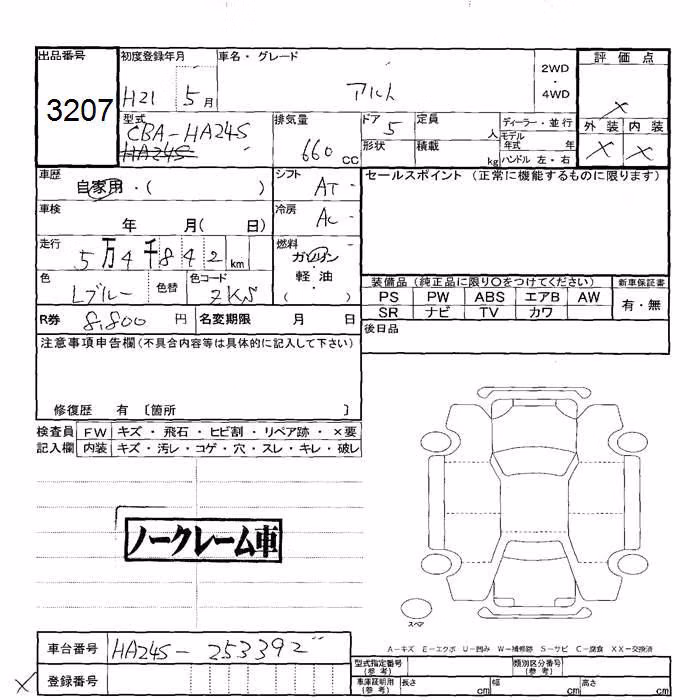 出品番号
3207
初度登録年月
H21 5月
車名・グレード
アルト
2WD
・
4WD
評価点
×
外装 内装
× ×
型式
CBA-HA24S
HA24S
排気量
660 cc
ドア
5
定員
人
ディーラー・並行
モデル年式 年
形状
積載
kg
ハンドル 左・右
車歴
自家用・( )
シフト
AT
セールスポイント (正常に機能するものに限ります)
車検
年 月( 日)
冷房
AC
走行
5万4千842km
燃料
ガソリン
軽油
( )
色
Lブルー
色替
色コード
ZKS
装備品 (純正品に限り〇をつけてください)
新車保証書
PS PW ABS エアB AW
有・無
SR ナビ TV カワ
R券 8,800 円
名変期限 月 日
後日品
注意事項申告欄(不具合内容等は具体的に記入して下さい)
修復歴 有 〔箇所 〕
検査員 FW キズ・飛石・ヒビ割・リペア跡・×要
記入欄 内装 キズ・汚レ・コゲ・穴・スレ・キレ・破レ
ノークレーム車
スペア
A-キズ E-エクボ U-凹み W-補修跡 S-サビ C-腐食 XX-交換済
車台番号 HA24S-253392"
× 登録番号
型式指定番号(参考)
類別区分番号(参考)
車庫証明用(参考) 長さ cm 幅 cm 高さ cm